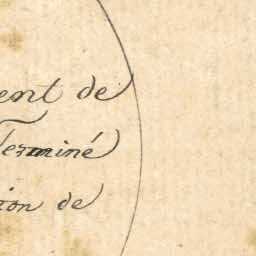 ent de
Terminé
ion de